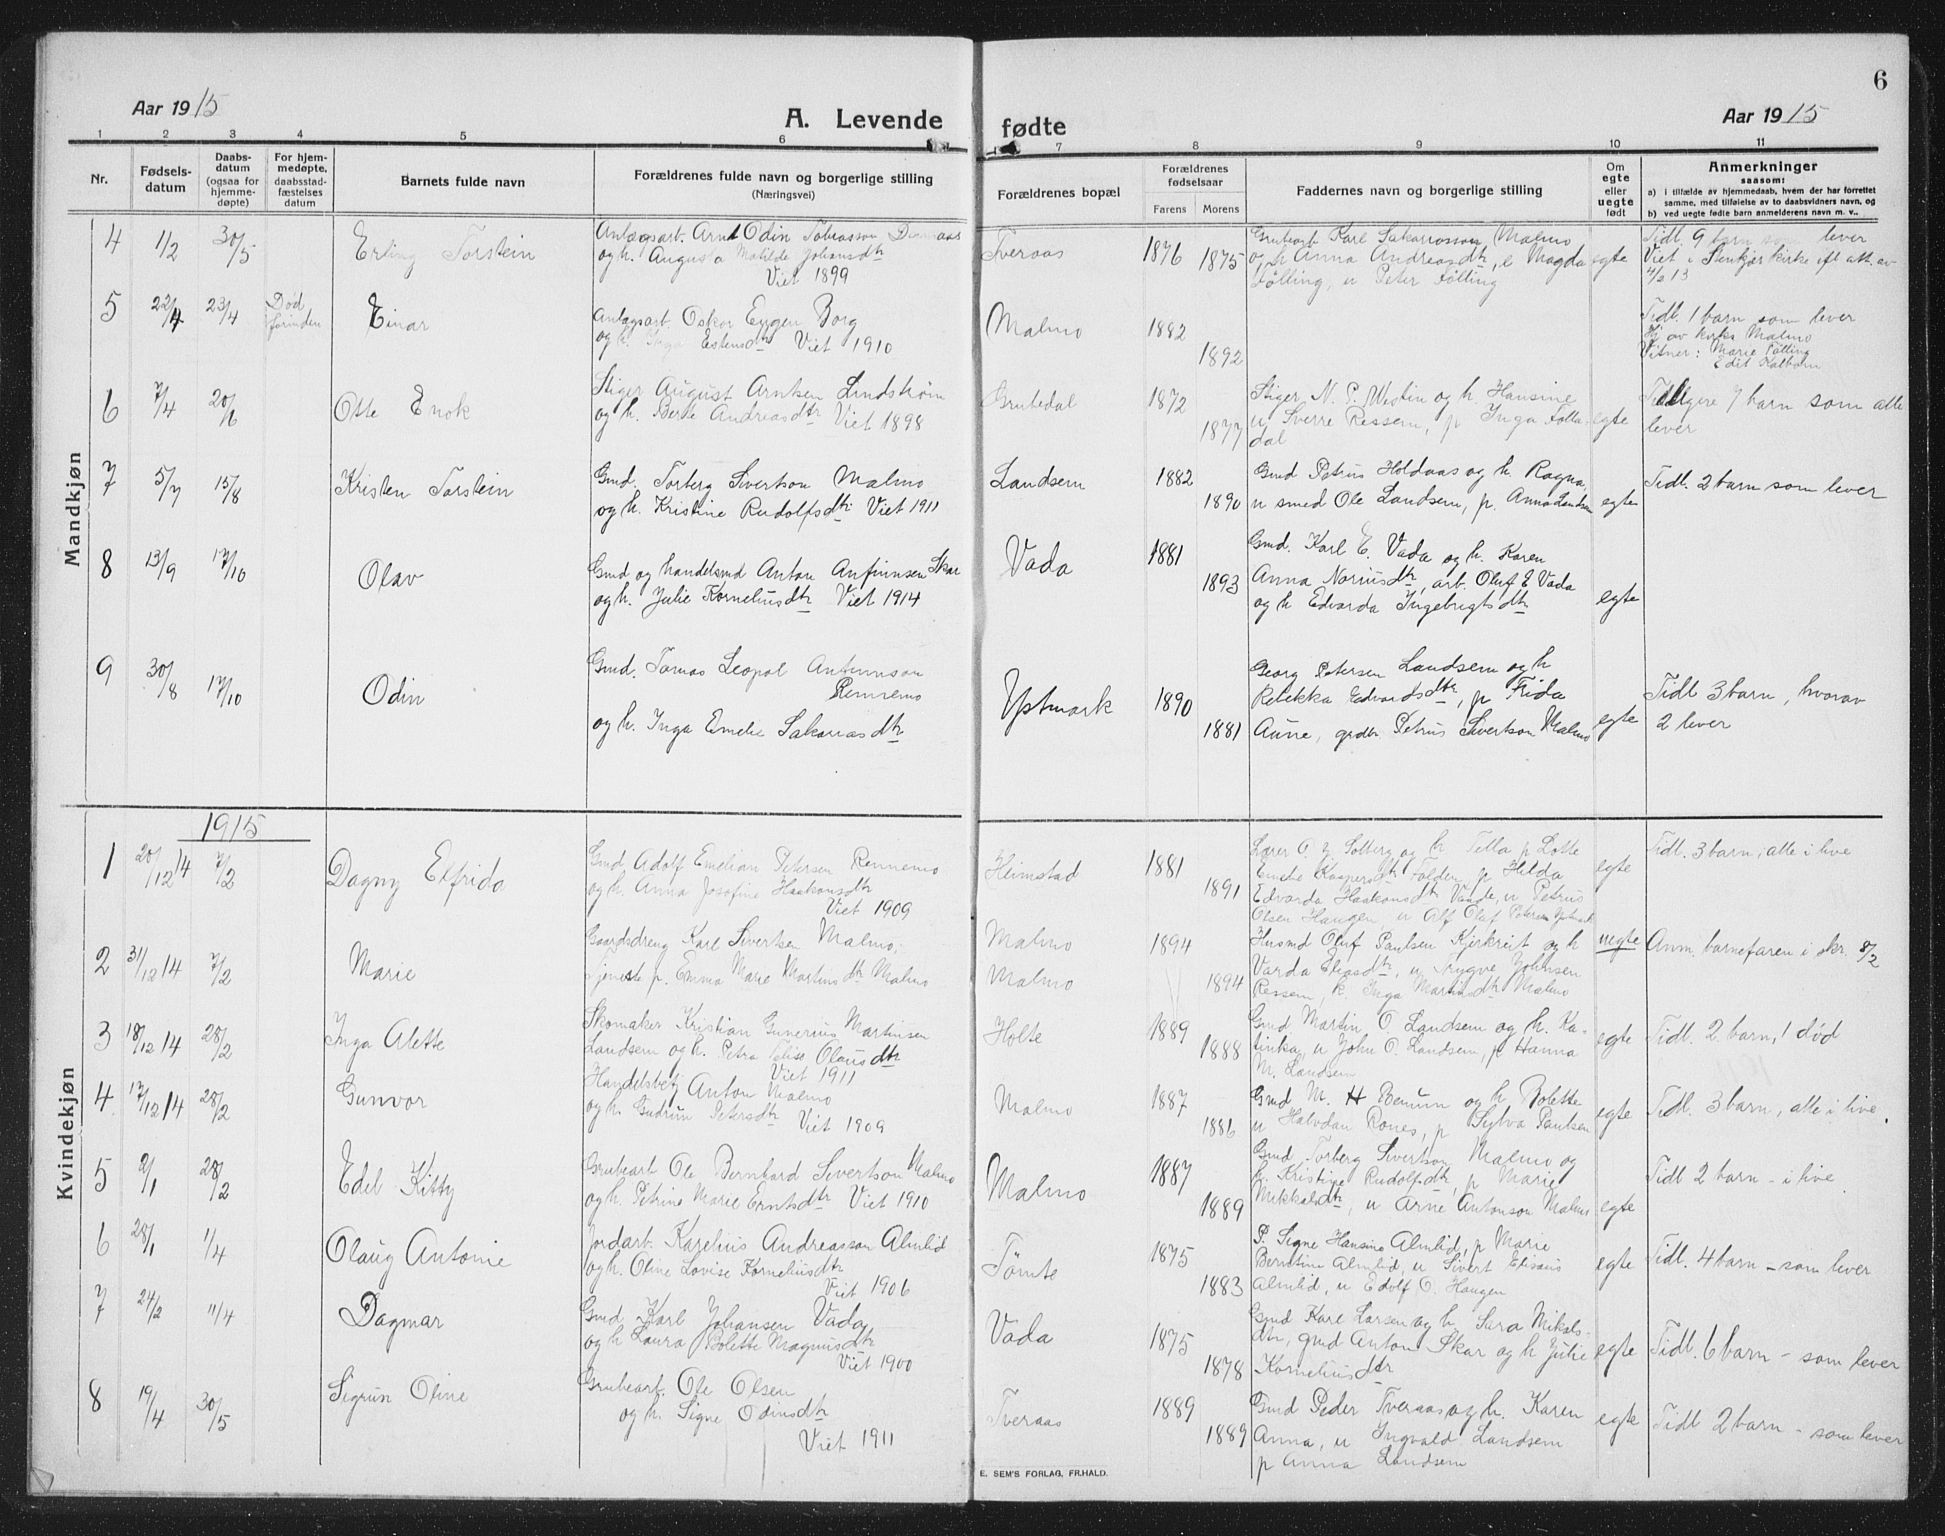 6
Aar 1915
A. Levende
fødte
Aar 1915
1 2 3 4 5 6 7 8 9 10 11
Nr.
Fødsels-
datum
Daabs-
datum
(ogsaa for
hjemme-
døpte)
For hjem-
medøpte,
daabsstad-
fæstelses
datum
Barnets fulde navn
Forældrenes fulde navn og borgerlige stilling
(Næringsvei)
Forældrenes bopæl
Forældrenes
fødselsaar
Farens Morens
Faddernes navn og borgerlige stilling
Om
egte
eller
uegte
født
Anmerkninger
saasom:
a) i tilfælde av hjemmedaab, hvem der har forrettet
samme, med tilføielse av to daabsvidners navn, og
b) ved uegte fødte barn anmelderens navn m. v..
Mandkjøn
4 1/2 30/5 Erling Torstein
Anlægsarb. Arnt Odin Tobiasson
og h. Augusta Matilde Johansdtr
Viet 1899
Tveraas 1876 1875
Grubearb Karl Sakariasson Malmo
og h Anna Andreasdtr, e Magda
Følling, u Peter Følling
egte
Tidl. 9 barn som lever
Viet i Stenkjær kirke eft att. av
4/2 13
5 22/4 23/4 Død
forinden
Einar
Anlægsarb. Oskar Eugen Borg
og h. Inga Estensdtr Viet 1910
Malmo 1882 1892
Tidl. 1 barn som lever
Hj av kirks Malmo
Vitner: Marie Følling
Edit Kalbom
6 7/4 20/6 Otte Enok
Stiger August Arntsen Lindstrøm
og h. Berte Andreasdtr Viet 1898
Grubedal 1872 1877
Stiger, N. P. Westin og h. Hansine
u Sverre Ressem, p Inga Folla-
dal
egte
Tidligere 7 barn som alle
lever
7 5/7 15/8 Kristen Torstein
Gmd. Torberg Sivertson Malmo
og h. Kristine Rudolfsdtr Viet 1911
Landsem 1882 1890
Gmd Petrus Holdaas og h Ragna,
u smed Ole Landsem, p. Anna Landsem
egte
Tidl. 2 barn som lever
8 13/9 17/10 Olav
Gmd og handelsmd Anton Anfinnsen Skar
og h. Julie Korneliusdtr Viet 1914
Vada 1881 1893
Gmd. Karl E. Vada og h. Karen
Anna Noriusdtr, arb. Oluf E Vada
og h Edvarda Ingebrigtsdtr
egte
9 30/8 17/10 Odin
Gmd. Tomas Leopol Antonson
Rennemo
og h. Inga Emelie Sakariasdtr
Ystmark 1890 1881
Georg Petersen Landsem og h
Rebekka Edvardsdtr, p Frida
Aune, grdbr Petrus Sivertson Malmo
egte
Tidl 3 barn, hvorav
2 lever
Kvindekjøn
1915
1 20/12 14 7/2 Dagny Elfrida
Gmd Adolf Emelian Petersen Rennemo
og h Anna Josefine Haakonsdtr
Viet 1909
Heimstad 1881 1891
Lærer O. Z Solberg og h Tella p Lotte
Emelie Kaspersdtr Folden, p Hilda
Edvarda Haakonsdtr Vaade, u Petrus
Olsen Haugen u Alf Olaf Petersen Ystmark
egte
Tidl. 3 barn, alle i live
2 31/12 14 7/2 Marie
Gaardsdreng Karl Sivertsen Malmo,
Tjeneste p. Emma Marie Martinsdtr Malmo
Malmo 1894
Malmo 1894
Husmd Oluf Paulsen Kjirkreit og h
Varda Eliasdtr, u Trygve Johnsen
Ressem, k. Inga Martinsdtr Malmo
uegte
Anm barnefaren i skr. 8/2
3 18/12 14 28/2 Inga Alette
Skomaker Kristian Gunerius Martinsen
Landsem og h. Petra Elise Olausdtr
Viet 1911
Holte 1889 1888
Gmd Martin O. Landsem og h. Ka-
tinka, u John O. Landsem, p Hanna
M. Landsem
egte
Tidl. 2 barn, 1 død
4 17/12 14 28/2 Gunvor
Handelsbetj Anton Malmo
og h. Gudrun Petersdtr
Viet 1909
Malmo 1887 1886
Gmd M. H Benum og h Bolette
u Halvdan Rones, p Sylva Paulsen
egte
Tidl. 3 barn, alle i live.
5 2/1 28/2 Edel Kitty
Grubearb Ole Bernhard Sivertson Malmo
og h. Petrine Marie Erntsdtr Viet 1910
Malmo 1887 1889
Gmd Torberg Sivertson Malmo og
h. Kristine Rudolfsdtr, p Marie
Mikkalsdtr, u Arne Antonson Malmo
egte
Tidl 2 barn - i live
6 28/1 1/4 Olaug Antonie
Jordarb. Karelius Andreasson Almlid
og h. Oline Lovise Kornelius dtr
Viet 1906
Tømte 1875 1883
P. Signe Hansine Almlid, p Marie
Berntine Almlid, u Sivert Elisæus
Almlid, u Edolf O. Haugen
egte
Tidl. 4 barn - som lever
7 24/2 11/4 Dagmar
Gmd Karl Johansen Vada
og h Laura Bolette Magnusdtr
Viet 1900
Vada 1875 1878
Gmd Karl Larsen og h Sara Mikals-
dtr, gmd Anton Skar og h Julie
Korneliusdtr
egte
Tidl. 6 barn - som lever
8 19/4 30/5 Sigrun Oline
Grubearb. Ole Olsen
og h. Signe Odinsdtr
Viet 1911
Tveraas 1889 1889
Gmd Peder Tveraas og h. Karen
Anna, u Ingvald Landsem
p Anna Landsem
egte
Tidl 2 barn - som lever
E. SEM'S FORLAG, FR.HALD.